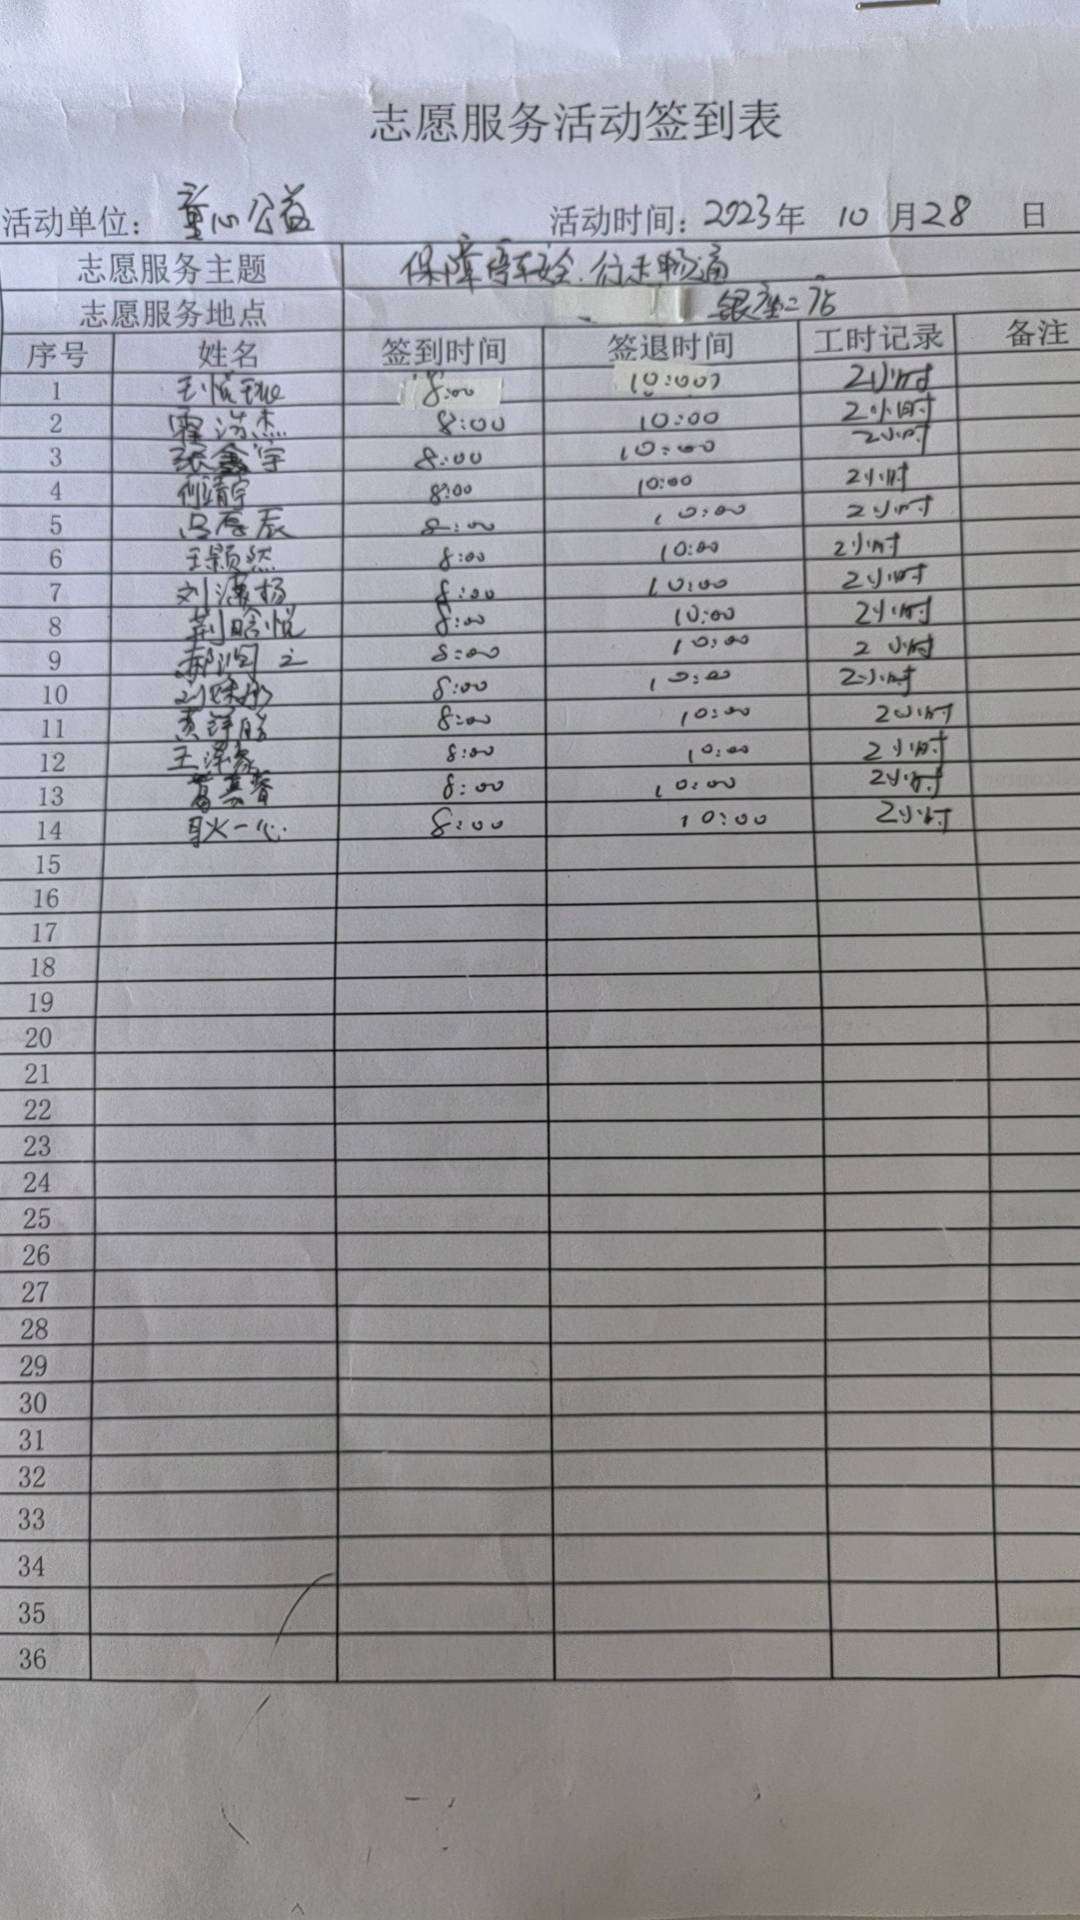 志愿服务活动签到表
活动单位：童心公益 活动时间：2023年 10 月28 日
志愿服务主题 保障停车安全.行走畅通
志愿服务地点 银座二店
序号 姓名 签到时间 签退时间 工时记录 备注
1 王悦 8:00 10:00 2小时
2 霍浩杰 8:00 10:00 2小时
3 张鑫宇 8:00 10:00 2小时
4 何靖宇 8:00 10:00 2小时
5 吕彦辰 8:00 10:00 2小时
6 王颢然 8:00 10:00 2小时
7 刘潇扬 8:00 10:00 2小时
8 荆晗悦 8:00 10:00 2小时
9 郝润之 8:00 10:00 2小时
10 刘姝彤 8:00 10:00 2小时
11 8:00 10:00 2小时
12 王泽 8:00 10:00 2小时
13 8:00 10:00 2小时
14 耿一心 8:00 10:00 2小时
15
16
17
18
19
20
21
22
23
24
25
26
27
28
29
30
31
32
33
34
35
36